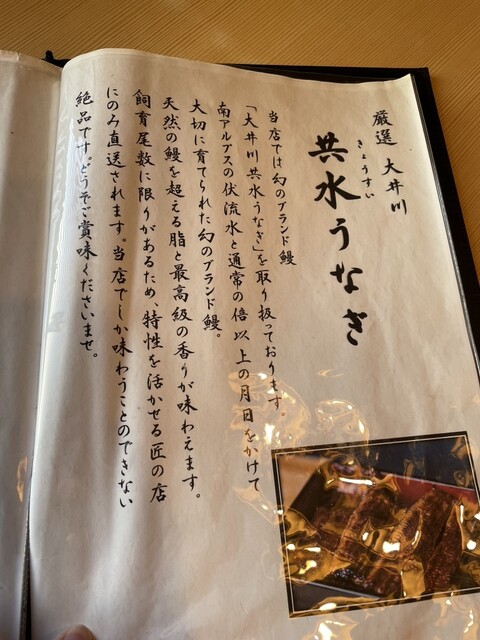 厳選 大井川
きょうすい
共水うなぎ
当店では幻のブランド鰻
「大井川共水うなぎ」を取り扱っております。
南アルプスの伏流水と通常の倍以上の月日をかけて
大切に育てられた幻のブランド鰻。
天然の鰻を超える脂と最高級の香りが味わえます。
飼育尾数に限りがあるため、特性を活かせる匠の店
にのみ直送されます。当店でしか味わうことのできない
絶品です。どうぞご賞味くださいませ。